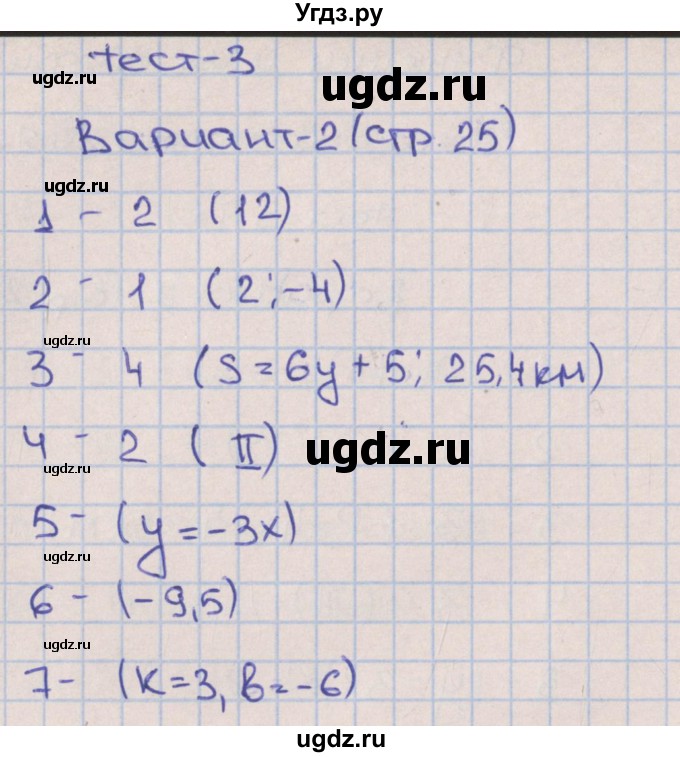 Угдз.ру
тест-3
ugdz.ru
ugdz.ru
Вариант-2 (стр. 25)
ugdz.ru
1 - 2 (12)
2 - 1 (2;-4)
ugdz.ru
3 - 4 (S=6y+5; 25,4км)
4 - 2 (II)
ugdz.ru
ugdz.ru
5 - (y=-3x)
ugdz.ru
6 - (-9,5)
ugdz.ru
7 - (K=3, в=-6)
ugdz.ru